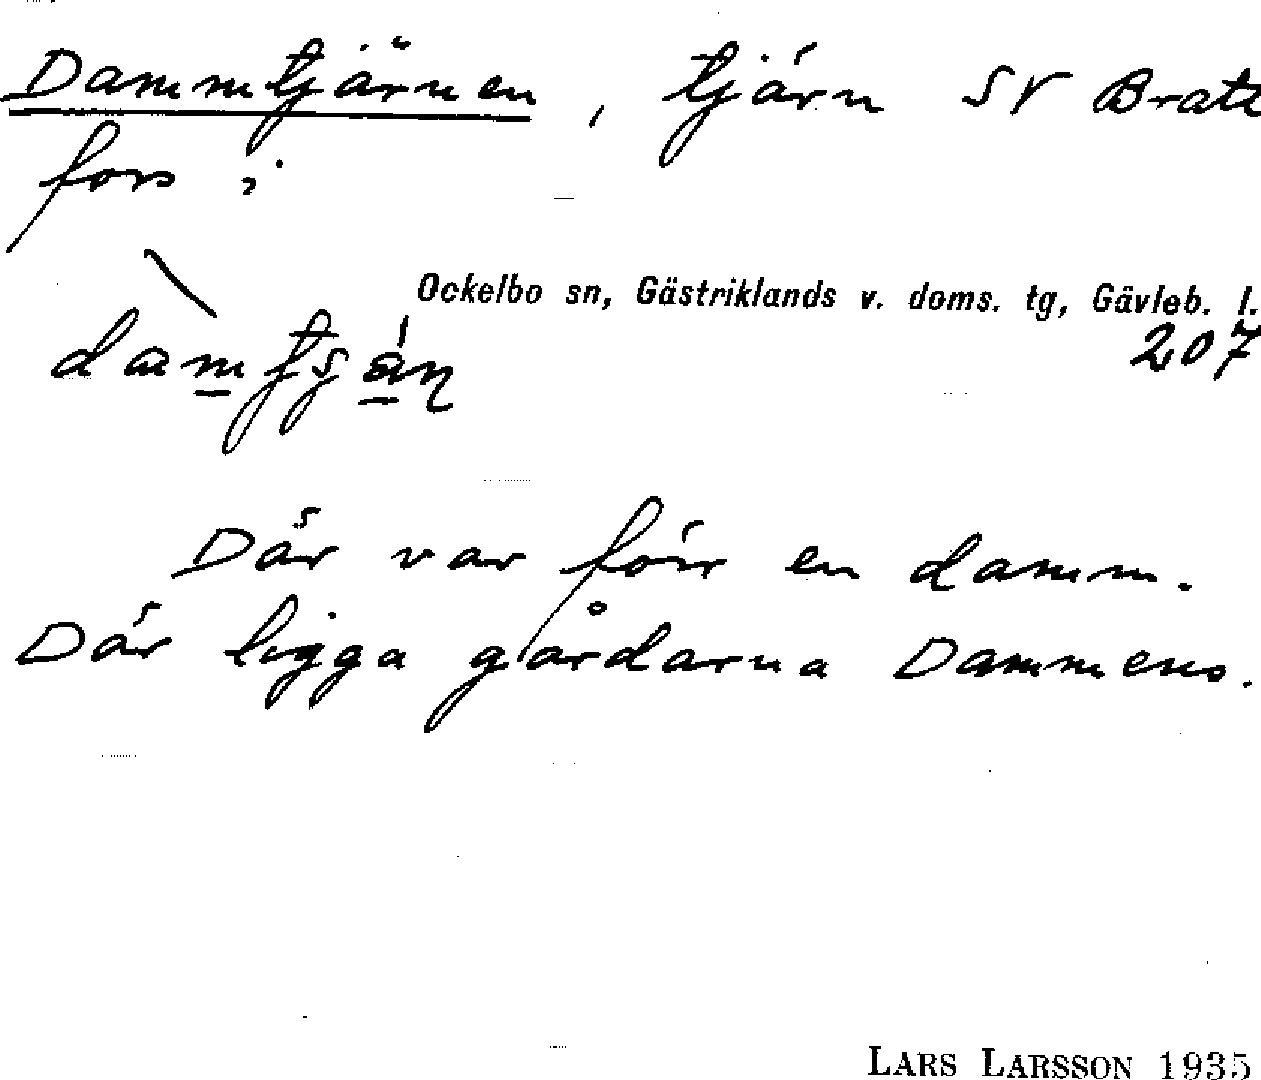 Dammtjärnen, tjärn SV Brate
fors i
Ockelbo sn, Gästriklands v. doms. tg, Gävleb. l.
207
Där var förr en damm.
Där ligga gårdarna Dammens.
LARS LARSSON 1935